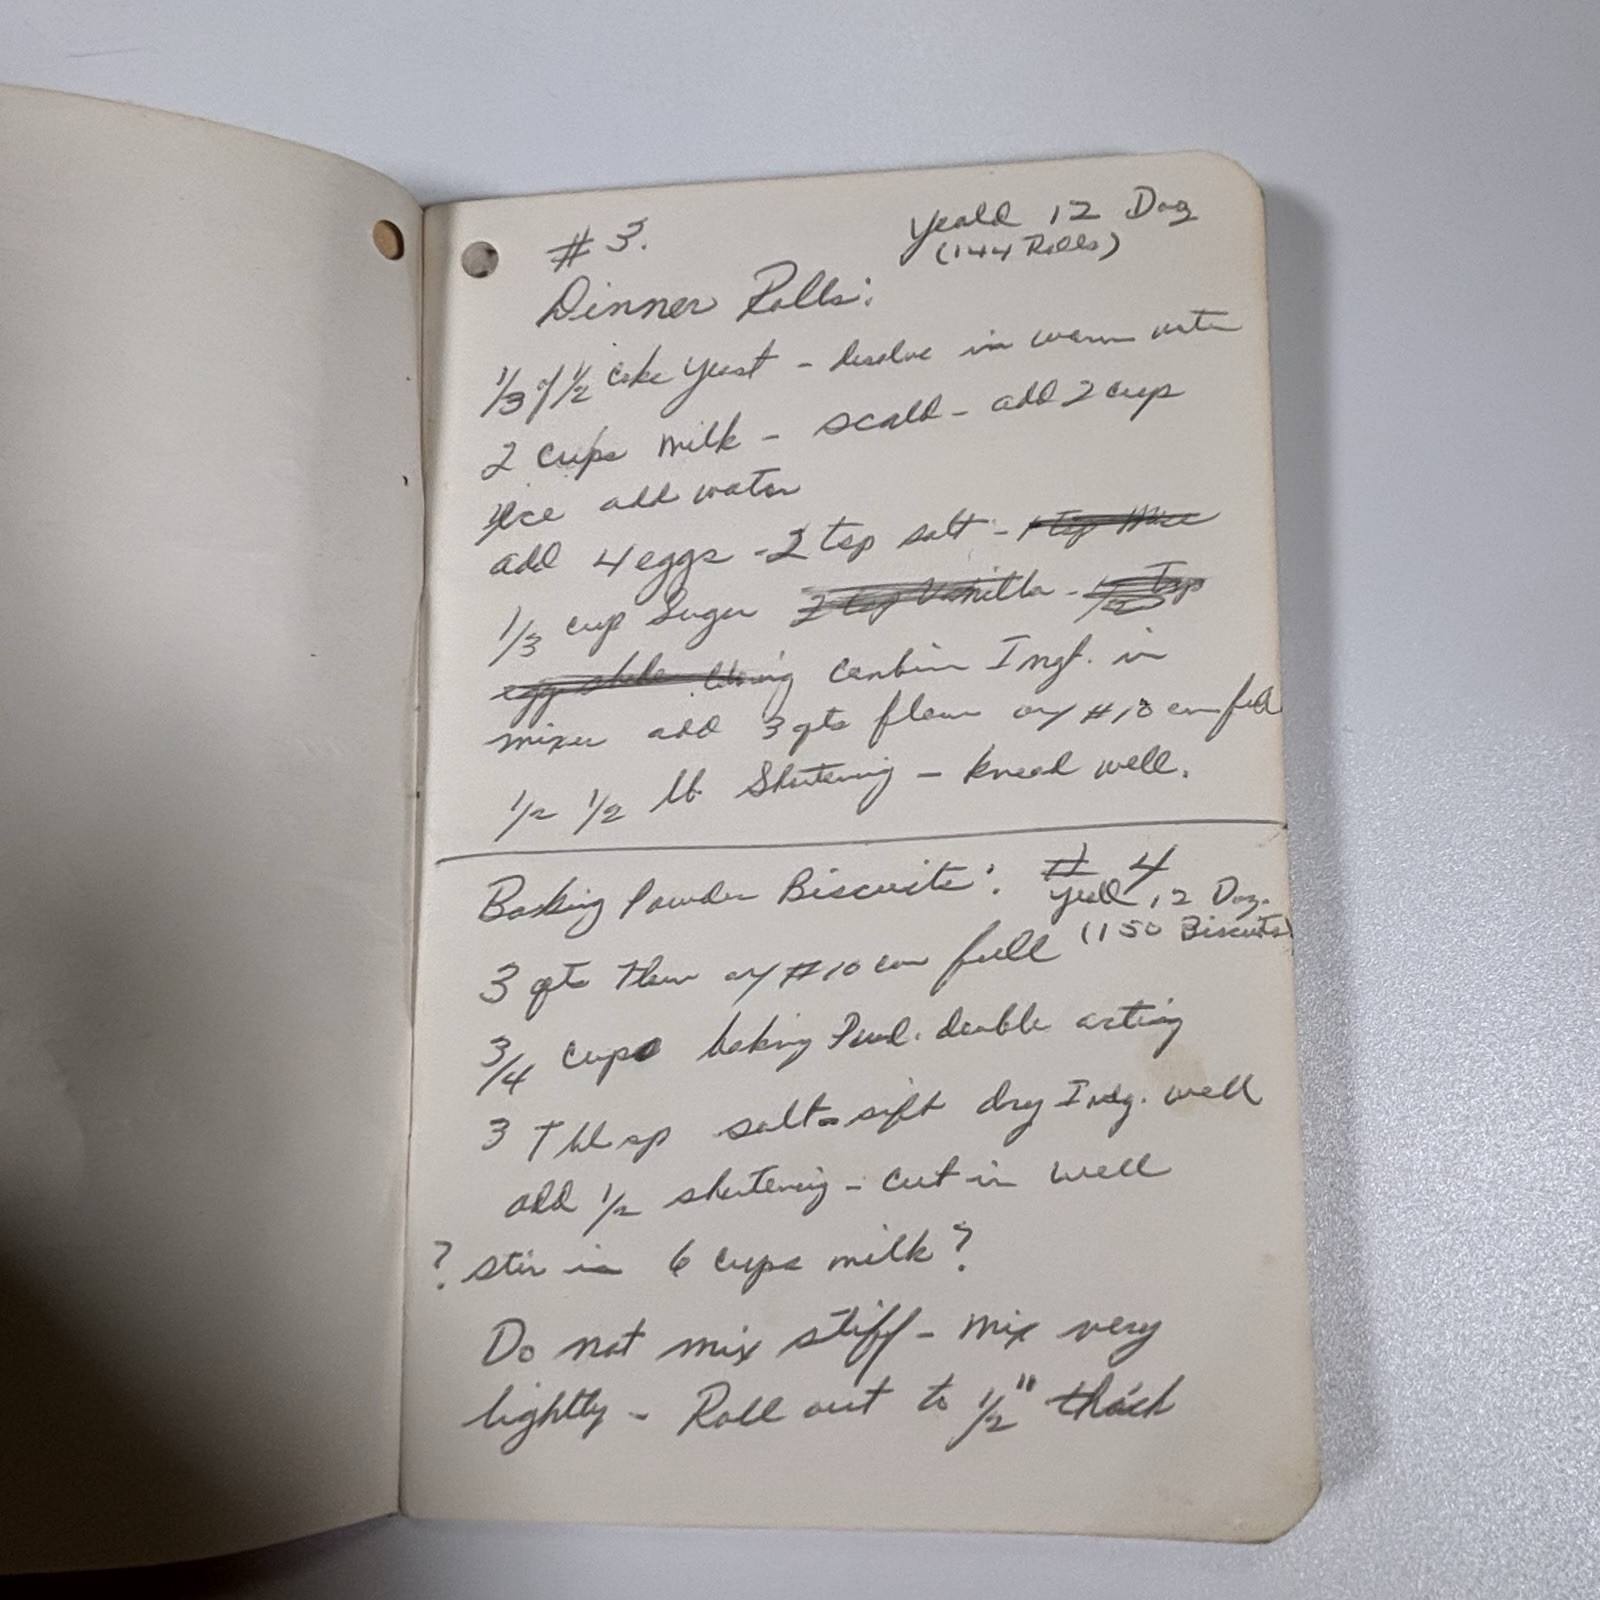 # 3.
Yeald 12 Doz
(144 Rolls)
Dinner Rolls:
1/3 of 1/2 Cake Yeast - desolve in warm water
2 cups milk - scald - add 2 cup
Ice add water
add 4 eggs - 2 tsp salt - 1 tsp Mace
1/3 cup Sugar 2 tsp Vanilla - 1/2 Tsp
egg shade coloring Conbin Ingt. in
mixer add 3 qts flour or # 10 can full
1/2 1/2 lb Shortening - knead well.
Baking Powder Biscuits: # 4
Yeald 12 Doz.
(150 Biscuits)
3 qts flour or # 10 can full
3/4 cups baking Powd. double acting
3 Tblsp salt - sift dry Indg. well
add 1/2 shortening - cut in well
? stir in 6 cups milk?
Do not mix stiff - mix very
lightly - Roll out to 1/2" thick